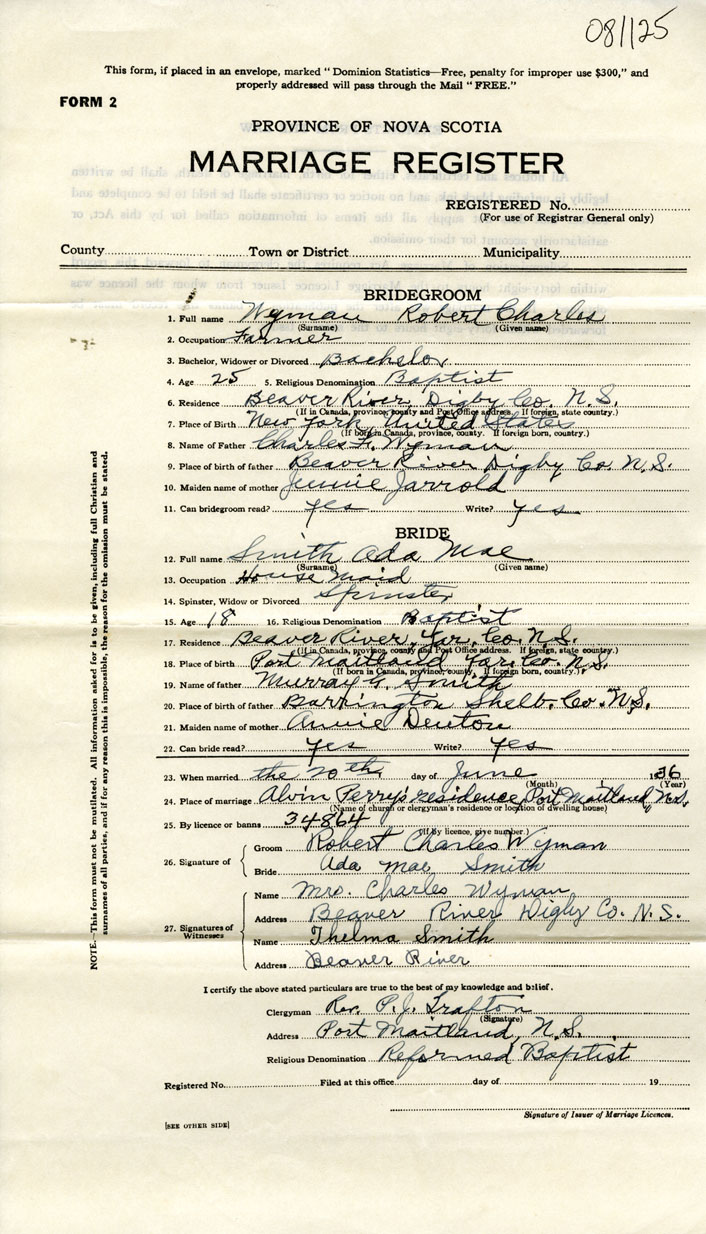 081125
This form, if placed in an envelope, marked " Dominion Statistics—Free, penalty for improper use $300," and
properly addressed will pass through the Mail " FREE."
FORM 2
PROVINCE OF NOVA SCOTIA
MARRIAGE REGISTER
REGISTERED No.
(For use of Registrar General only)
County Town or District Municipality
BRIDEGROOM
1. Full name Wyman Robert Charles
(Surname) (Given name)
2. Occupation Farmer
3. Bachelor, Widower or Divorced Bachelor
4. Age 25 5. Religious Denomination Baptist
6. Residence Beaver River, Digby Co. N.S.
(If in Canada, province, county and Post Office address. If foreign, state country.)
7. Place of Birth New York, United States
(If born in Canada, province, county. If foreign born, country.)
8. Name of Father Charles F. Wyman
9. Place of birth of father Beaver River Digby Co. N.S.
10. Maiden name of mother Jennie Jarrold
11. Can bridegroom read? yes Write? yes
BRIDE
12. Full name Smith Ada Mae
(Surname) (Given name)
13. Occupation House Maid
14. Spinster, Widow or Divorced Spinster
15. Age 18 16. Religious Denomination Baptist
17. Residence Beaver River, Yar. Co. N.S.
(If in Canada, province, county and Post Office address. If foreign, state country.)
18. Place of birth Port Maitland Yar. Co. N.S.
(If born in Canada, province, county. If foreign born, country.)
19. Name of father Murray G. Smith
20. Place of birth of father Barrington Shelb. Co. N.S.
21. Maiden name of mother Annie Denton
22. Can bride read? yes Write? yes
23. When married the 20th day of June 1936
(Month) (Year)
24. Place of marriage Alvin Perry's residence, Port Maitland N.S.
(Name of church or clergyman's residence or location of dwelling house)
25. By licence or banns 34864
(If by licence, give number.)
26. Signature of
Groom Robert Charles Wyman
Bride Ada Mae Smith
27. Signatures of Witnesses
Name Mrs. Charles Wyman
Address Beaver River Digby Co. N.S.
Name Thelma Smith
Address Beaver River
I certify the above stated particulars are true to the best of my knowledge and belief.
Clergyman Rev. P.J. Trafton
(Signature)
Address Port Maitland, N.S.
Religious Denomination Reformed Baptist
Registered No. Filed at this office day of 19
Signature of Issuer of Marriage Licences.
[SEE OTHER SIDE]
NOTE.—This form must not be mutilated. All information asked for is to be given, including full Christian and
surnames of all parties, and if for any reason this is impossible, the reason for the omission must be stated.